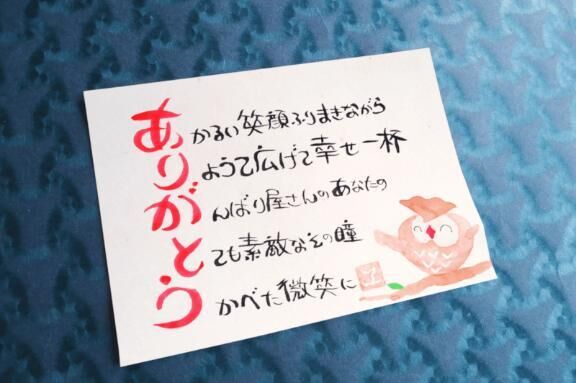 あかるい笑顔ふりまきながら
りようて広げて幸せ一杯
がんばり屋さんのあなたの
とても素敵なその瞳
うかべた微笑に